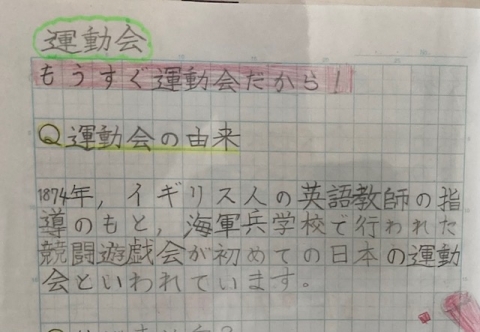 運動会
もうすぐ運動会だから!
Q運動会の由来
1874年,イギリス人の英語教師の指
導のもと,海軍兵学校で行われた
競闘遊戯会が初めての日本の運動
会といわれています。